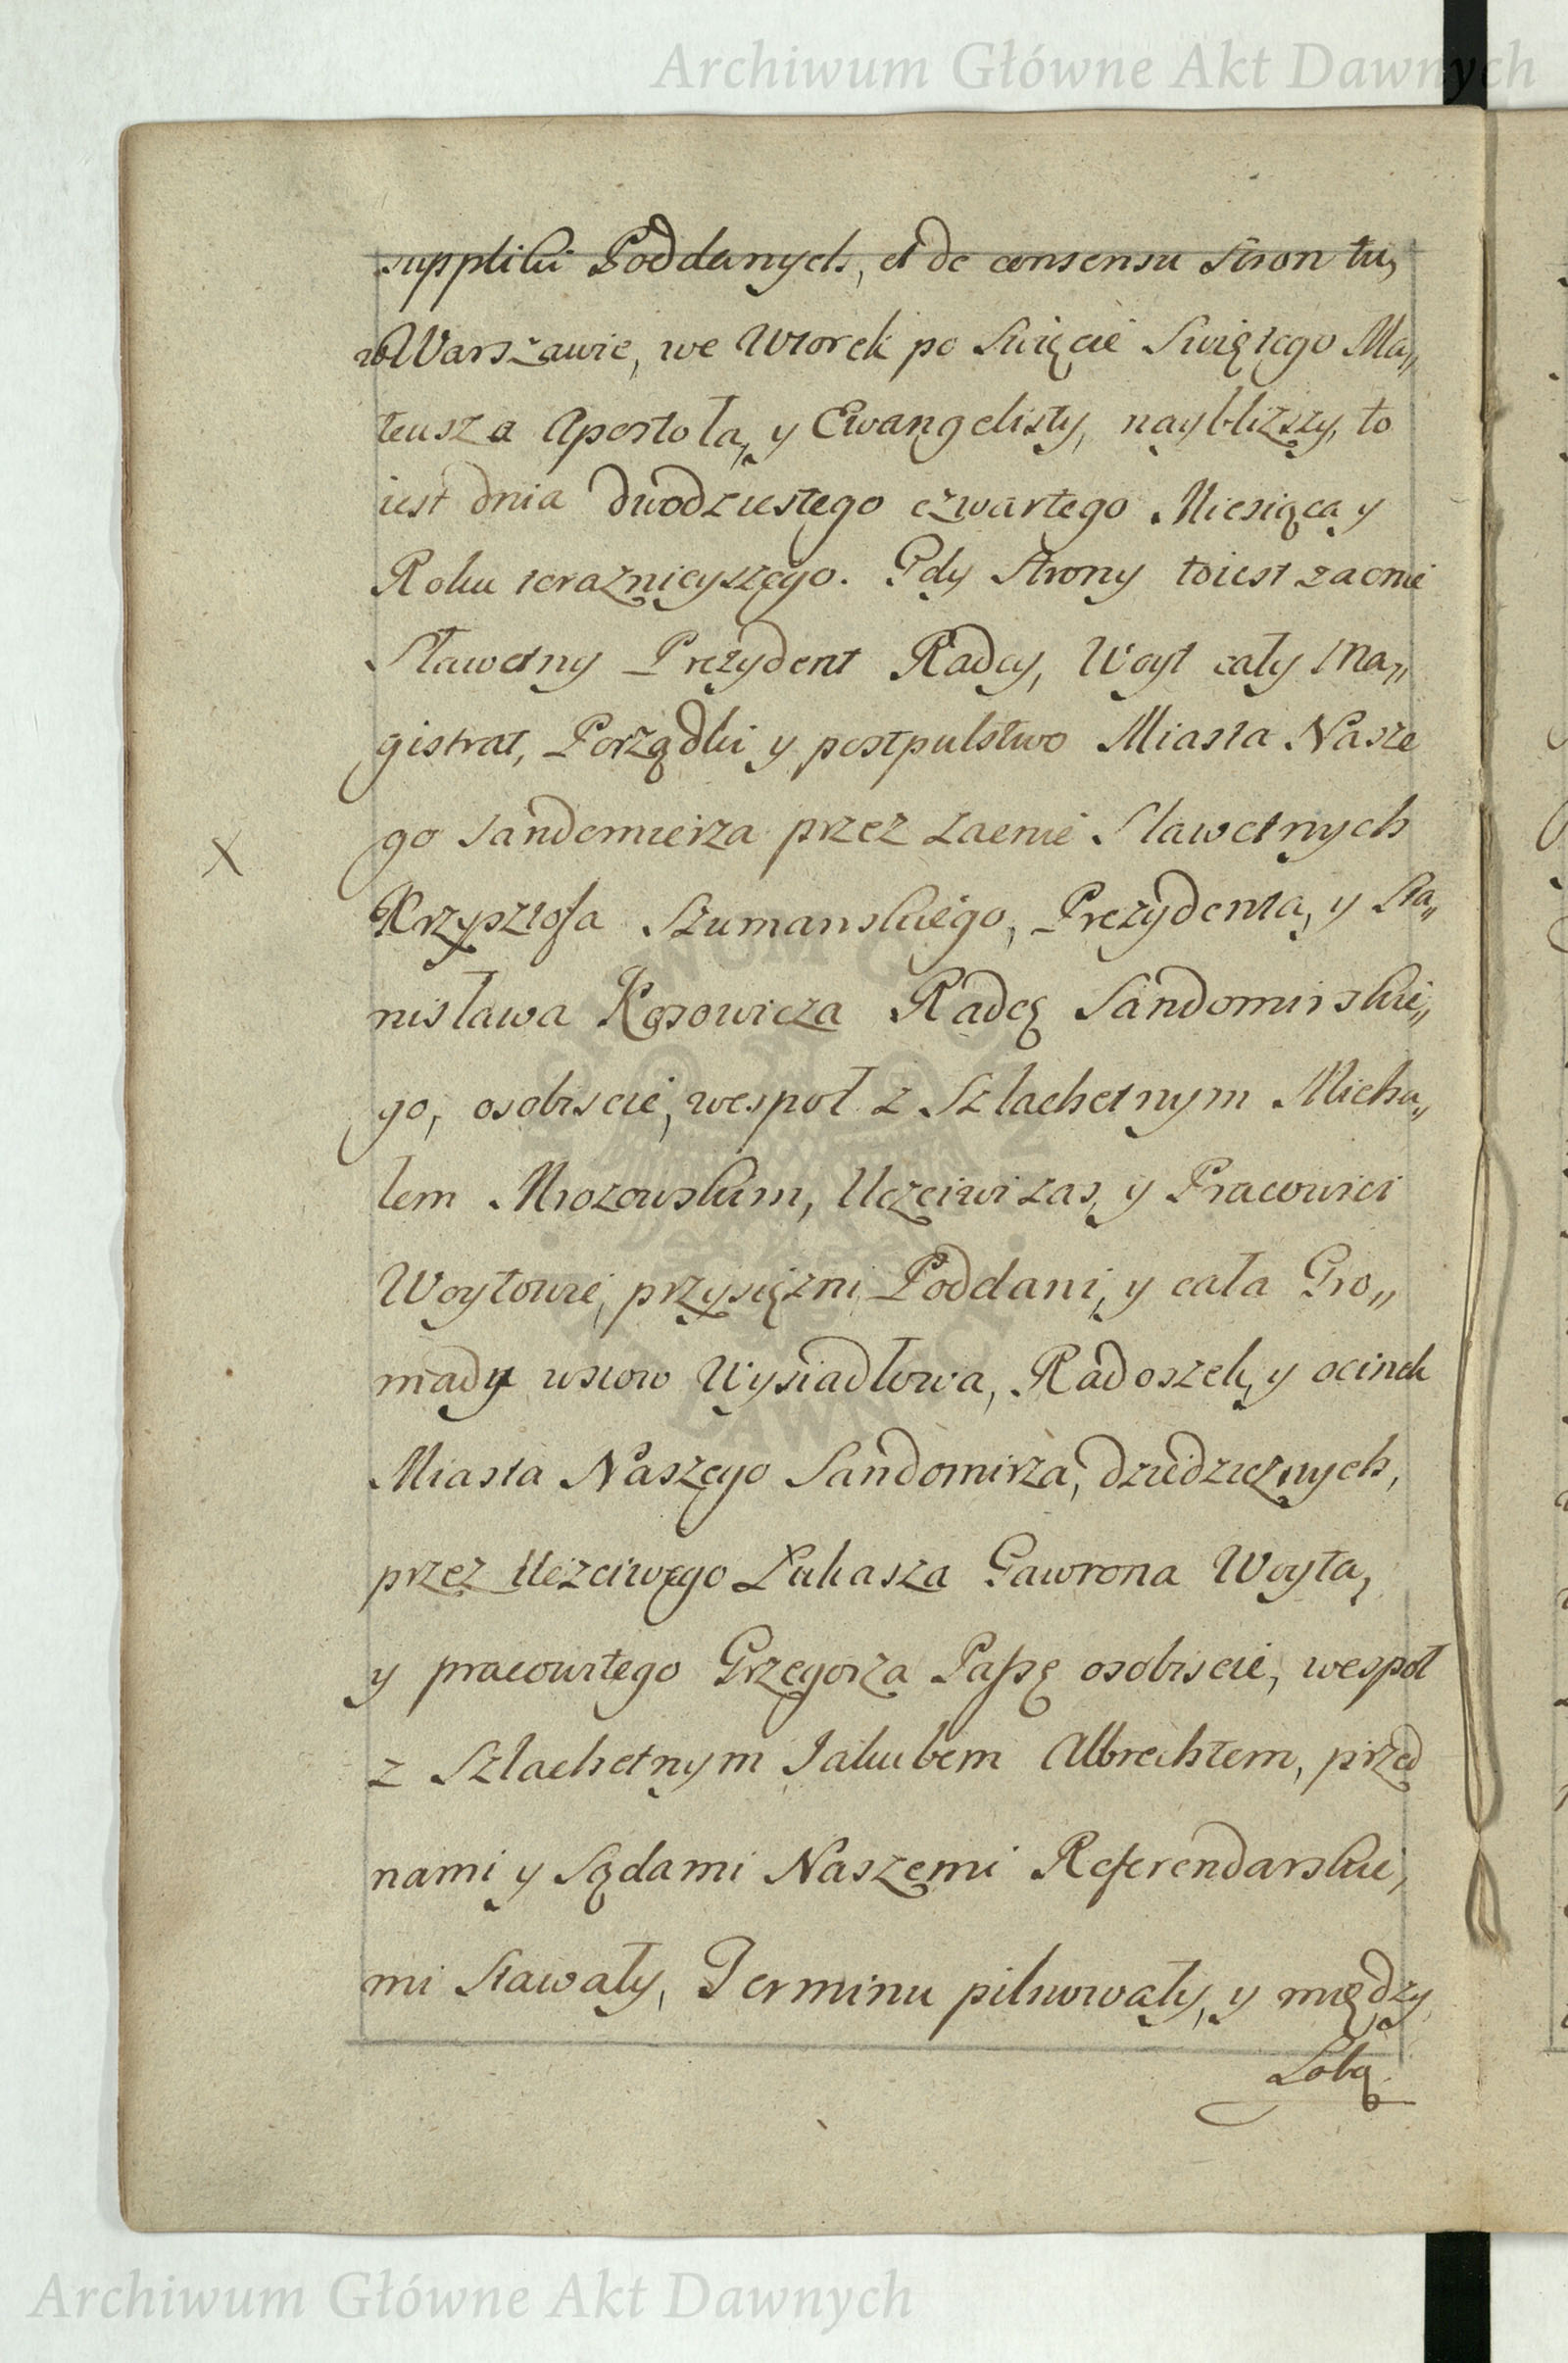 Archiwum Główne Akt Dawnych
suppliki Poddanych, et de consensu Stron tu,
w Warszawie, we Wtorek po Swięcie Swiętego Ma„
teusza Apostoła, y Ewangelisty, nayblizszy, to
iest dnia dwodziestego czwartego Miesiąca y
Roku teraznieyszego. Gdy Strony toiest zacnie
Sławetny Prezydent Radcy, Woyt cały Ma„
gistrat, Porządki y postpulstwo Miasta Nasze
go Sandomierza przez zacnie Sławetnych
X
Krzysztofa Szumanskiego, Prezydenta, y Sta„
nisława Kosowicza Radcę Sandomirskie„
go, osobiscie, wespoł z Szlachetnym Micha„
łem Mrozowskim, Uczciwi zas, y Pracowici
Woytowie, przysięzni, Poddani, y cała Gro„
mady wsiow Wysiadłowa, Radoszek, y ocinek
Miasta Naszego Sandomirza, dziedzicznych,
przez Uczciwego Łukasza Gawrona Woyta,
y pracowitego Grzegorza Passę osobiscie, wespoł
z Szlachetnym Jakubem Albrechtem, przed
nami y Sądami Naszemi Referendarskie,
mi stawały, Terminu pilnowały, y między
Sobą
Archiwum Główne Akt Dawnych